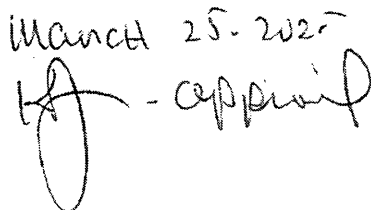 March 25-2025
- approved